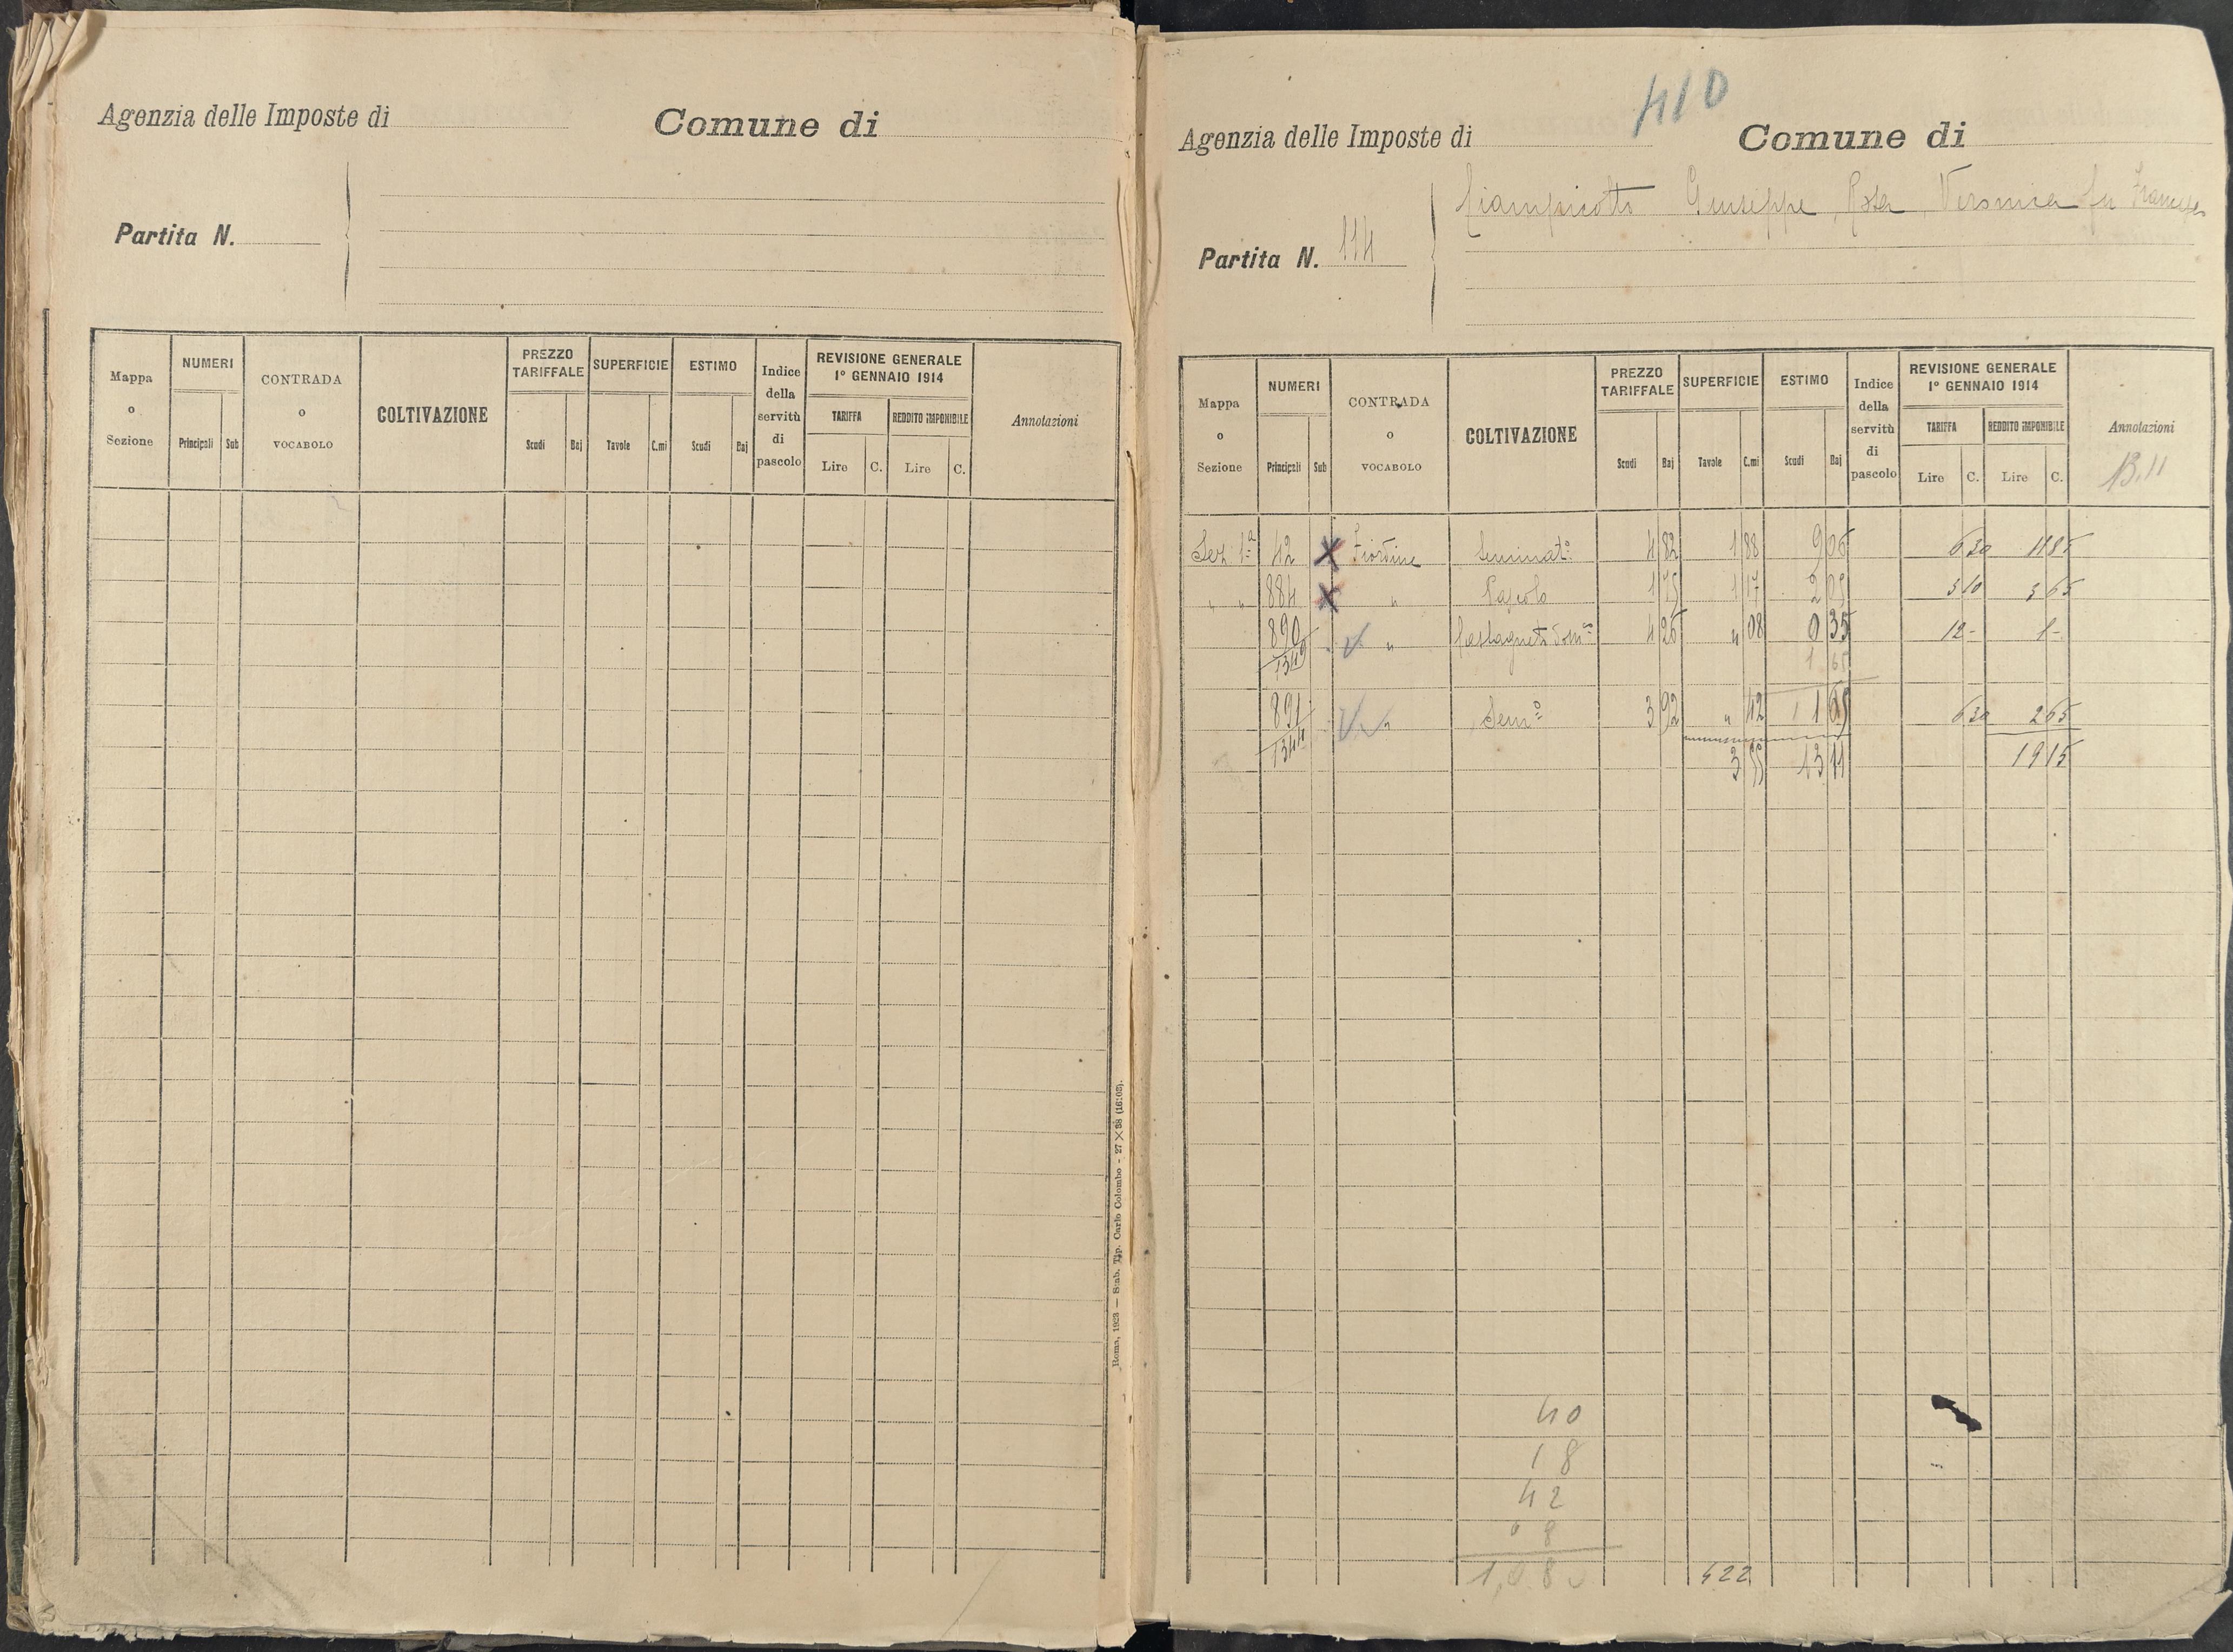 Agenzia delle Imposte di
Comune di
Partita N.
Mappa o Sezione
NUMERI
Principali
Sub
CONTRADA o VOCABOLO
COLTIVAZIONE
PREZZO TARIFFALE
Scudi
Baj
SUPERFICIE
Tavole
C.mi
ESTIMO
Scudi
Baj
Indice della servitù di pascolo
REVISIONE GENERALE
1° GENNAIO 1914
TARIFFA
Lire
C.
REDDITO IMPONIBILE
Lire
C.
Annotazioni
Roma, 1923 — Stab. Tip. Carlo Colombo - 27 X 38 (16:05).
410
Agenzia delle Imposte di
Comune di
Partita N. 114
Giuseppe, Rosa, Veronica fu
Mappa o Sezione
NUMERI
Principali
Sub
CONTRADA o VOCABOLO
COLTIVAZIONE
PREZZO TARIFFALE
Scudi
Baj
SUPERFICIE
Tavole
C.mi
ESTIMO
Scudi
Baj
Indice della servitù di pascolo
REVISIONE GENERALE
1° GENNAIO 1914
TARIFFA
Lire
C.
REDDITO IMPONIBILE
Lire
C.
Annotazioni
13.11
Sez. 1ª 42 X Seminatº 4 82 1 88 9 06 6 30 11 85
" " 884 X " Pascolo 1 75 1 17 2 05 3 10 3 65
890 " Castagneto 4 26 " 08 0 35 12 - 1 -
1349 1 65
891 " Semº 3 92 " 42 1 65 6 30 2 65
1344 3 55 13 11 19 15
40
18
42
8
1,08
422